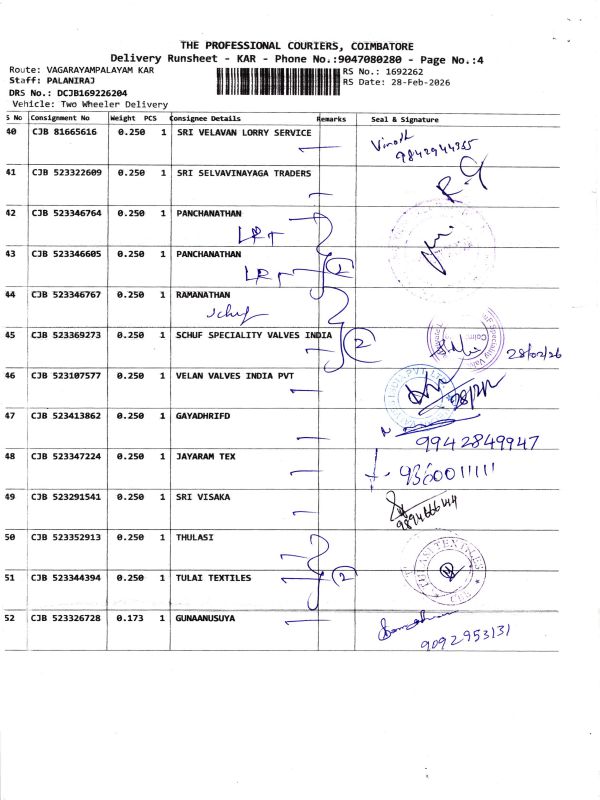 THE PROFESSIONAL COURIERS, COIMBATORE
Delivery Runsheet - KAR - Phone No.:9047080280 - Page No.:4
Route: VAGARAYAMPALAYAM KAR
RS No.: 1692262
Staff: PALANIRAJ
RS Date: 28-Feb-2026
DRS No.: DCJB169226204
Vehicle: Two Wheeler Delivery
S No Consignment No Weight PCS Consignee Details Remarks Seal & Signature
40 CJB 81665616 0.250 1 SRI VELAVAN LORRY SERVICE
Vinoth
9842944355
41 CJB 523322609 0.250 1 SRI SELVAVINAYAGA TRADERS
42 CJB 523346764 0.250 1 PANCHANATHAN
LRT
43 CJB 523346605 0.250 1 PANCHANATHAN
LRT
44 CJB 523346767 0.250 1 RAMANATHAN
schuf
45 CJB 523369273 0.250 1 SCHUF SPECIALITY VALVES INDIA
2
28/02/26
46 CJB 523107577 0.250 1 VELAN VALVES INDIA PVT
47 CJB 523413862 0.250 1 GAYADHRIFD
9942849947
48 CJB 523347224 0.250 1 JAYARAM TEX
9360011111
49 CJB 523291541 0.250 1 SRI VISAKA
50 CJB 523352913 0.250 1 THULASI
51 CJB 523344394 0.250 1 TULAI TEXTILES
2
52 CJB 523326728 0.173 1 GUNAANUSUYA
9092953131